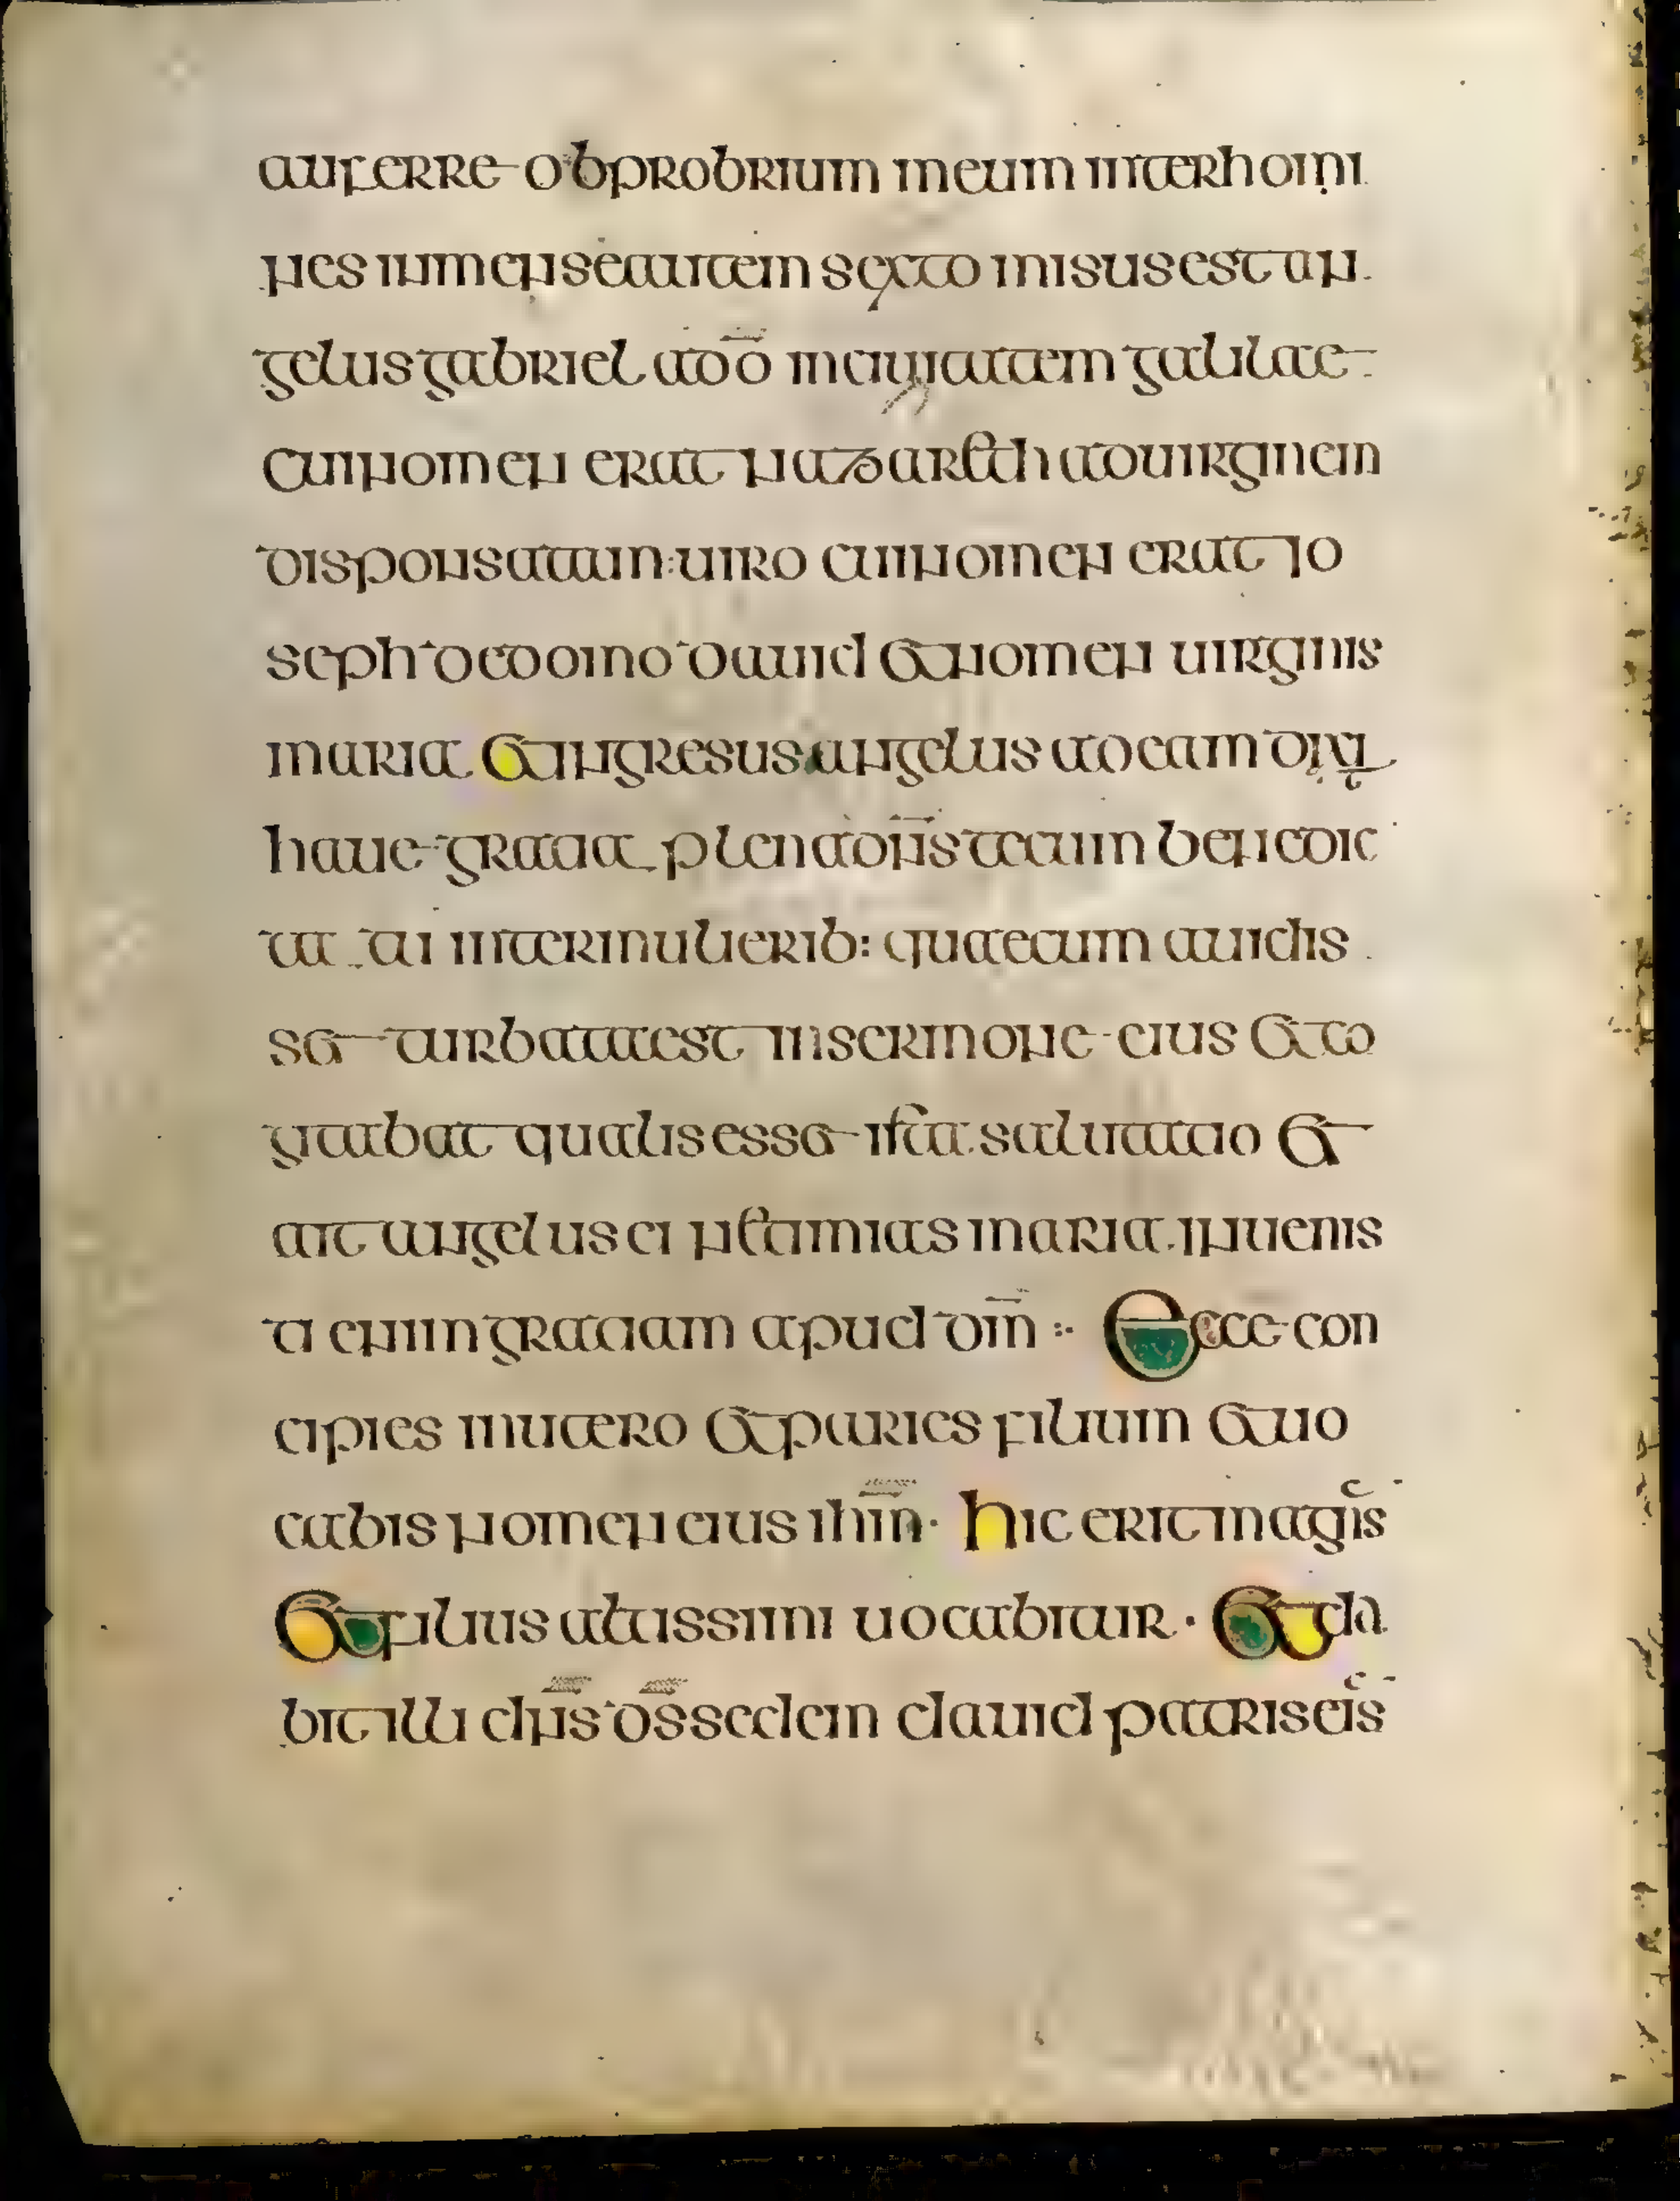 auferre obprobrium meum inter homi
nes in mense autem sexto misus est an
gelus gabriel a dō in ciuitatem galilae
cui nomen erat nazareth ad uirginem
disponsatam: uiro cui nomen erat io
seph de domo dauid et nomen uirginis
maria et ingresus angelus ad eam dixi
haue gratia plena dn̄s tecum benedic
ta tu inter mulierib: quae cum audis
set turbata est in sermone eius et co
gitabat qualis esset ista salutatio et
ait angelus ei ne timias maria inuenis
ti enim gratiam apud dm̄ :· Ecce con
cipies in utero et paries filium et uo
cabis nomen eius ihm̄· hic erit magn̄s
Et filius altissimi uocabitur · Et da
bit illi dn̄s ds̄ sedem dauid patris eīs